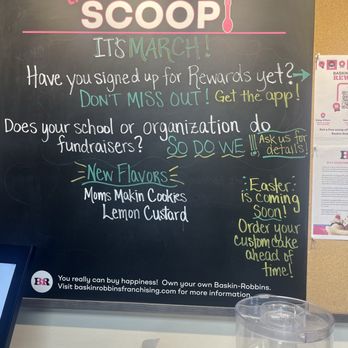 SCOOP!
IT'S MARCH!
Have you signed up for Rewards yet?
DON'T MISS OUT! Get the app!
Does your school or organization do
fundraisers? SO DO WE!!! Ask us for
details!
New Flavors
Moms Makin Cookies
Lemon Custard
Easter
is coming
Soon!
Order your
custom cake
ahead of
time!
BR
You really can buy happiness! Own your own Baskin-Robbins.
Visit baskinrobbinsfranchising.com for more information.